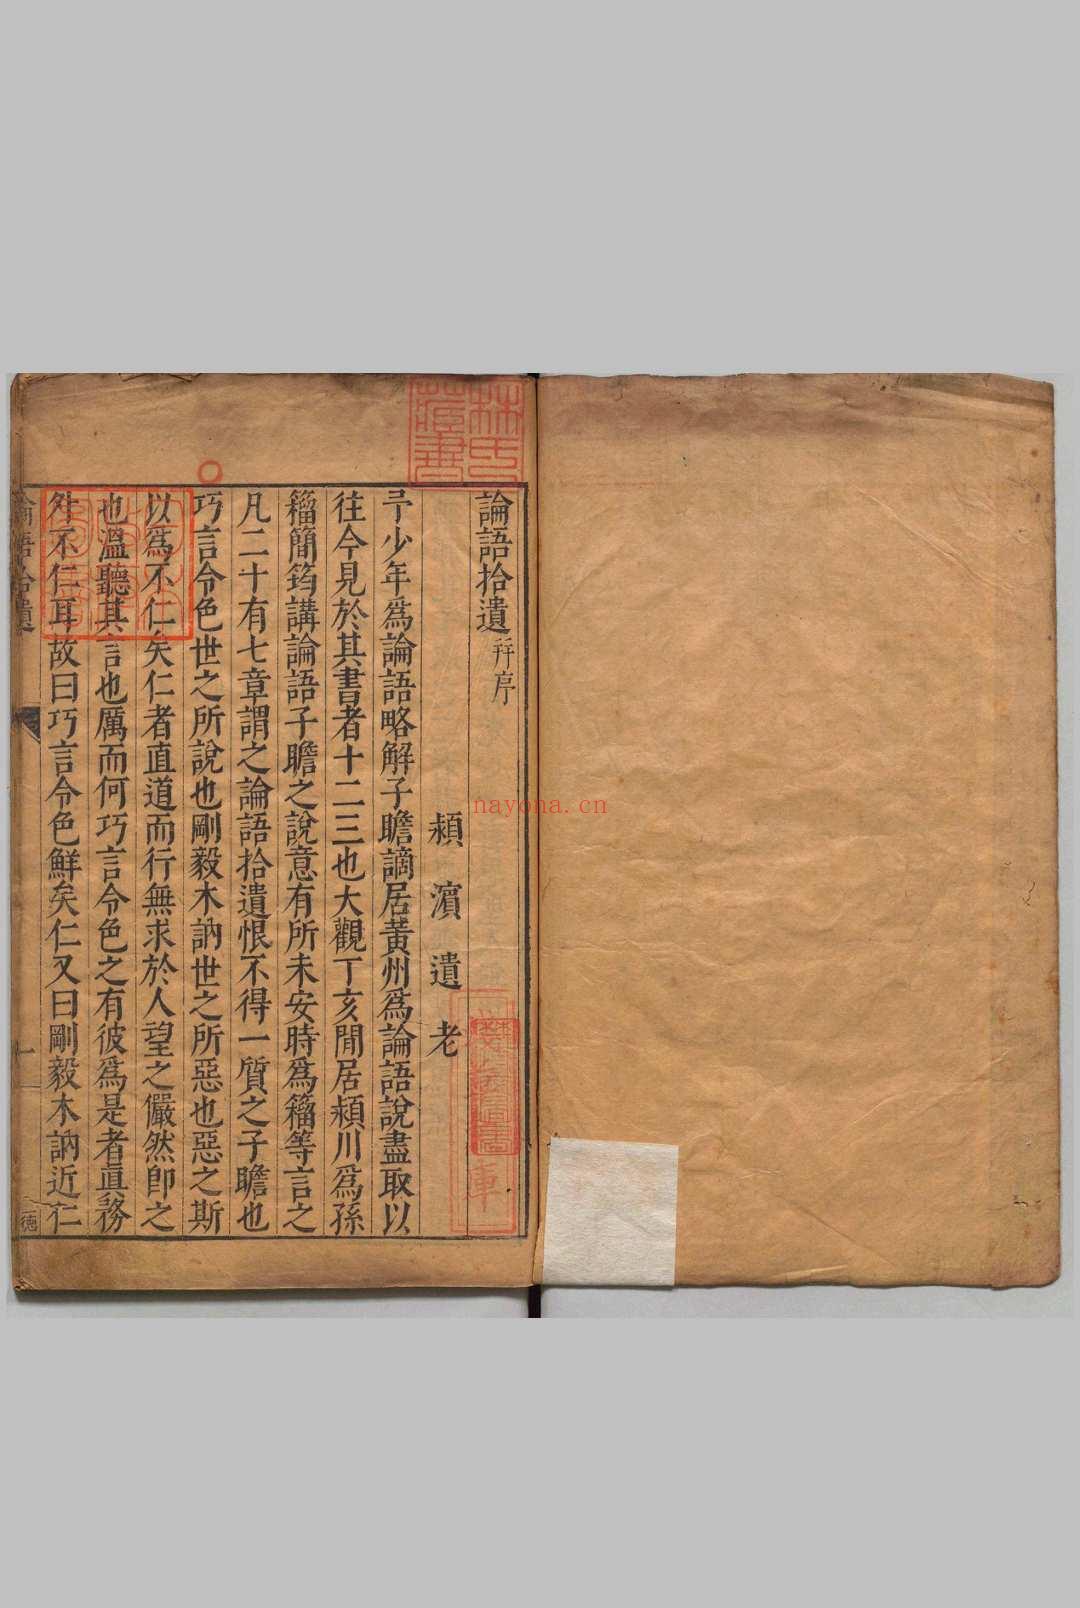 論語拾遺 并序
潁濵遺老
予少年爲論語略解子瞻謫居黄州爲論語說盡取以
往今見於其書者十二三也大觀丁亥閒居潁川爲孫
籀簡筠講論語子瞻之說意有所未安時爲籀等言之
凡二十有七章謂之論語拾遺恨不得一質之子瞻也
巧言令色世之所說也剛毅木訥世之所惡也惡之斯
以爲不仁矣仁者直道而行無求於人望之儼然卽之
也溫聽其言也厲而何巧言令色之有彼爲是者眞務
外不仁耳故曰巧言令色鮮矣仁又曰剛毅木訥近仁
論語拾遺
一
德
林氏藏書
nayona.cn